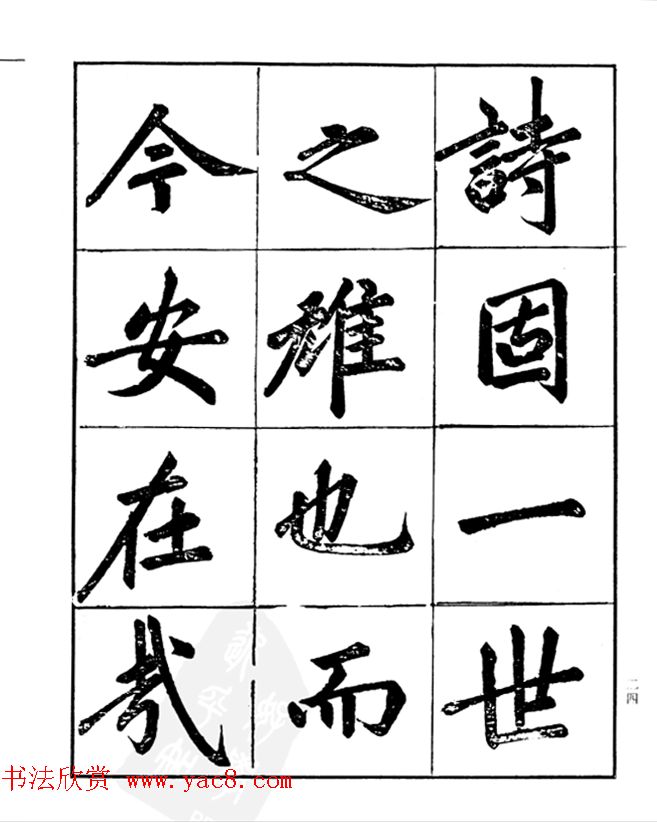 詩固一世
之雄也而
今安在哉
二四
书法欣赏 www.yac8.com